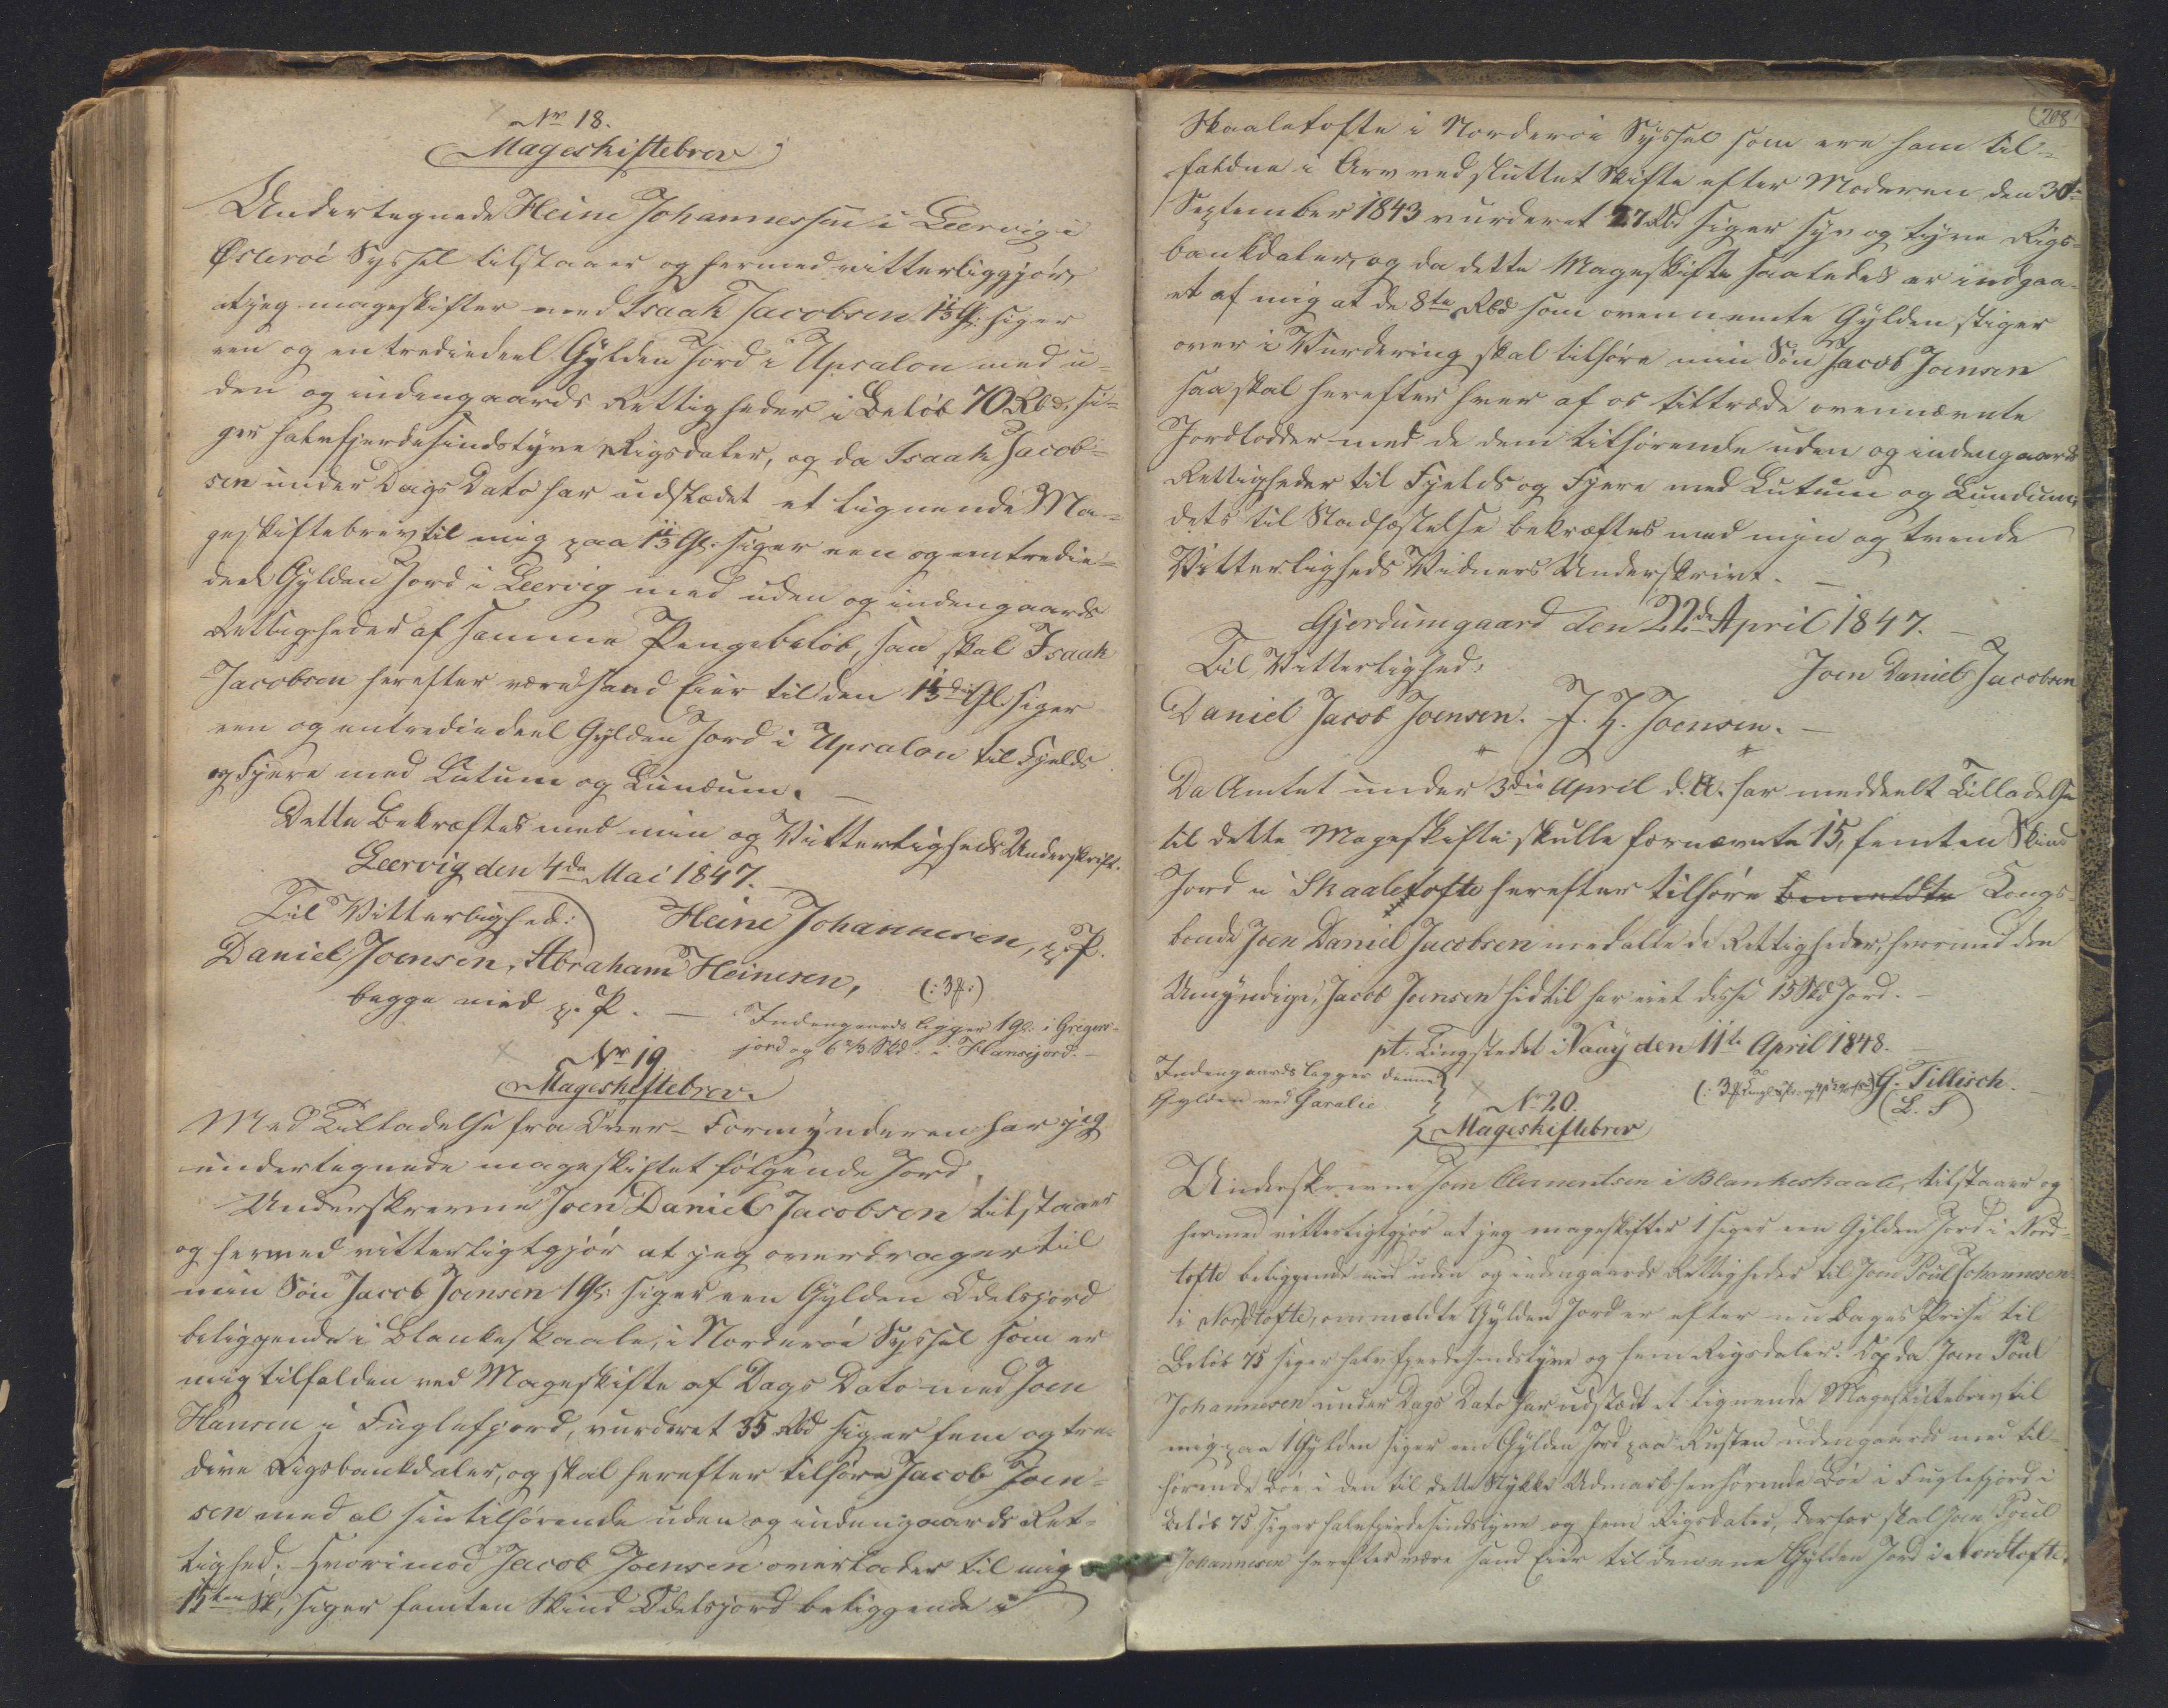 No 18.
Mageskiftebrev
Undertegnede Heine Johannessen i Leervig i
Østerøe Syssel tilstaaer og hermed vitterliggjør,
at jeg mageskifter med Isaak Jacobsen 1 1/3 Gl: siger
een og en trediedeel Gylden Jord i Upsalon med u=
den og indengaards Rettigheder i Beløb 70 Rbd, si=
ger halvfjerdesindstyve Rigsdaler, og da Isaak Jacob=
sen under Dags Dato har udstædet et lignende Ma=
geskiftebrev til mig paa 1 1/3 Gl. siger een og een tredie=
deel Gylden Jord i Leervig med uden og indengaards
Rettigheder af samme Pengebeløb, saa skal Isaak
Jacobsen herefter være sand Eier til den 1 1/3 Gl. siger
een og entrediedeel Gylden Jord i Upsalon til Fjelds
og Fjere med Lutum og Lundum. —
Dette Bekræftes med min og Vitterligheds Underskrift.
Leervig den 4de Mai 1847. —
Til Vitterlighed: Heine Johannesen, p. P.
Daniel Joensen, Abraham Heinesen,
begge med p. P. —
Indengaards ligger 1 Gl. i Gregers=
jord og 6 2/3 Skd. i Hansejord. —
No 19
Mageskiftebrev.
Med Tilladelse fra Over-Formynderen har jeg
undertegnede mageskiftet følgende Jord.
Underskrevne Joen Daniel Jacobsen tilstaaer
og hermed vitterligtgjør at jeg overdrager til
min Søn Jacob Joensen 1 Gl: siger een Gylden Odelsjord
beliggende i Blankeskaale, i Norderøe Syssel som er
mig tilfalden ved Mageskifte af Dags Dato med Joen
Hansen i Fuglefjord, vurderet 35 Rbd siger fem og tre=
dive Rigsbankdaler, og skal herefter tilhøre Jacob Joen=
sen med al sin tilhørende uden og indengaards Ret=
tighed; Hvorimod Jacob Joensen overlader til mig
15ten Sk, siger femten Skind Odelsjord beliggende i
208
Skaaletofte i Norderøe Syssel som ere ham til=
faldne i Arv ved sluttet Skifte efter Moderen den 30te
September 1843 vurderet 27 Rbd siger syv og tyve Rigs=
bankdaler, og da dette Mageskifte saaledes er indgaa=
et af mig at de 8te Rbd som ovennemte Gylden stiger
over i Vurdering skal tilhøre min Søn Jacob Joensen
saa skal herefter hver af os tiltræde ovennævnte
Jordlodder med de dem tilhørende uden og indengaards
Rettigheder til Fjelds og Fjere med Lutum og Lundum,
dets til Stadfæstelse bekræftes med min og tvende
Vitterligheds Vidners Underskrivt. —
Gjerdumgaard den 22de April 1847. —
Til Vitterlighed: Joen Daniel Jacobsen
Daniel Jacob Joensen. J. H. Joensen. —
Da Amtet under 3die April d. A. har meddeelt Tilladelse
til dette Mageskifte skulle fornævnte 15, femten Skind
Jord i Skaaletofte herefter tilhøre bemeldte Kongs=
bonde Joen Daniel Jacobsen med alle de Rettigheder, hvormed den
Umyndige, Jacob Joensen hidtil har eiet disse 15 Skd Jord. —
pt. Tingstedet i Vaay den 11te April 1848. —
G. Tillisch.
(L. S)
Indengaards ligger denne
Gylden ved
No 20.
Mageskiftebrev
Underskrevne Joen Clementsen i Blankeskaale, tilstaaer og
hermed vitterligtgjør at jeg mageskifter 1 siger een Gylden Jord i Nord=
tofte beliggende med uden og indengaards Rettigheder til Joen Poul Johannesen
i Nordtofte, ommeldte Gylden Jord er efter nu Dages Priis til
Beløb 75 siger halvfjerdesindstyve og fem Rigsdaler. Og da Joen Poul
Johannesen under Dags Dato har udstædt et lignende Mageskiftebrev til
mig paa 1 Gylden siger een Gylden Jord paa Rusten udengaards med til=
hørende Bøe i den til dette Stykke Udmark henhørende Bøe i Fuglefjord i
Beløb 75 siger halvfjerdesindstyve og fem Rigsdaler, derfor skal Joen Poul
Johannesen herefter være sand Eier til den ene Gylden Jord i Nordtofte,